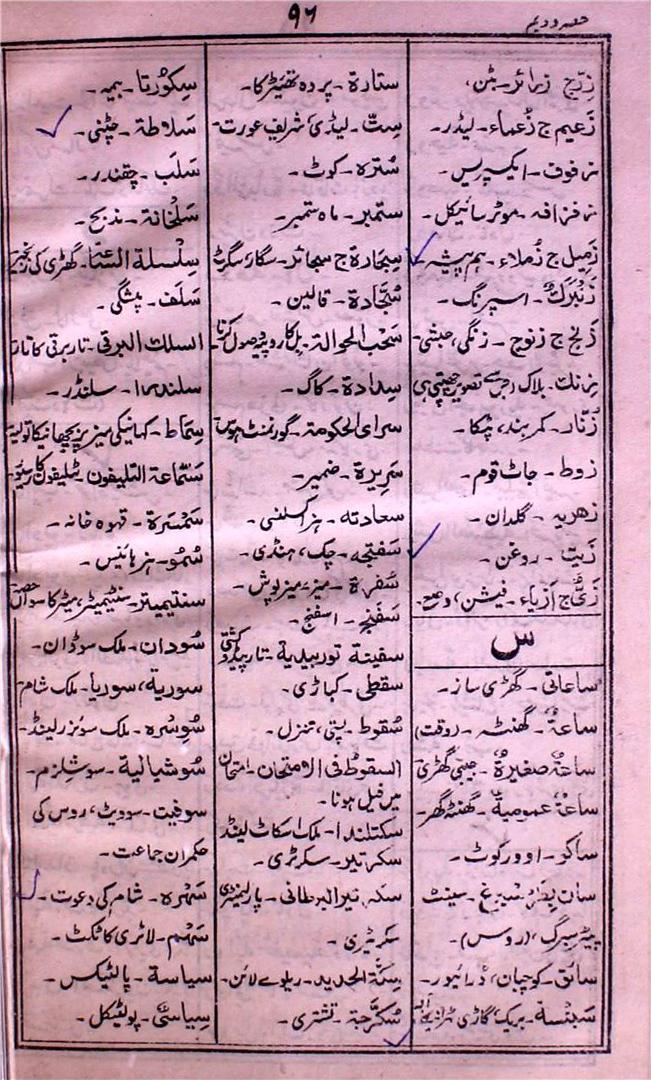 ۹۶
حصہ دویم
زِرّج زرائر۔ بٹن،
زَعیم ج زُعماء۔ لیڈر۔
زفوف۔ ایکسپریس۔
زفزافہ۔ موٹر سائیکل۔
زَمِیل ج زُملاء۔ ہم پیشہ۔
زَنْبُرَک۔ اسپرنگ۔
زَنج ج زنوج۔ زنگی، حبشی۔
زنك۔ بلاک (جس سے تصویر چھپتی ہی
زُنّار۔ کمر بند، پٹکا۔
زوط۔ جاٹ قوم۔
زھریہ۔ گلدان۔
زَیت۔ روغن۔
زَیٌّ ج اَزیاء۔ فیشن، وضع۔
س
ساعاتی۔ گھڑی ساز۔
ساعۃ۔ گھنٹہ۔ (وقت)
ساعۃ صغیرۃ۔ جیبی گھڑی
ساعۃ عمومیۃ۔ گھنٹہ گھر۔
ساکو۔ اوورکوٹ۔
سان بطرسبرغ۔ سینٹ
پیٹرسبرگ، (روس)۔
سائق۔ کوچبان، ڈرائیور۔
سَبَنْسة۔ بریک گاڑی
ستارۃ۔ پردہ تھیٹر کا۔
سِتّ۔ لیڈی، شریف عورت۔
سُترہ۔ کوٹ۔
ستمبر۔ ماہ ستمبر۔
سِجارۃ ج سجائر۔ سگار، سگرٹ
سُجّادۃ۔ قالین۔
سَحْب الحوالۃ۔ بل کا روپیہ وصول کرنا۔
سِدادۃ۔ کاگ۔
سرای الحکومۃ۔ گورنمنٹ ہوس
سَرِیرۃ۔ ضمیر۔
سعادتہ۔ ہز اکسلنسی۔
سَفتجہ۔ چک، ہنڈی۔
سُفرۃ۔ میز، میز پوش۔
سَفَنج۔ اسفنج۔
سفینۃ توربیدیۃ۔ تارپیڈو کشتی
سقطی۔ کباڑی۔
سُقوط۔ پستی، تنزل۔
السقوط فی الامتحان۔ امتحان
میں فیل ہونا۔
سکتلندا۔ ملک اسکاٹ لینڈ
سکرتیر۔ سکرٹری۔
سکرتیر البرطانی۔ پارلیمنٹری
سکرٹیری۔
سِکّۃ الحدید۔ ریلوے لائن۔
سُکُرّجۃ۔ تشتری۔
سِکُورتا۔ بیمہ۔
سَلاطۃ۔ چٹنی۔
سَلَب۔ چقندر۔
سَلْخانۃ۔ مذبح۔
سِلْسلۃ الساعۃ۔ گھڑی کی زنجیر
سَلَف۔ پیشگی۔
السلك البرقی۔ تار برقی کا تار
سلندرا۔ سلنڈر۔
سِمَاط۔ کھانیکی میز پر بچھانیکا تولیہ
سَمّاعۃ التلیفون۔ ٹیلیفون کا رسیور
سَمْسَرۃ۔ قہوہ خانہ۔
سُمُو۔ ہز ہائنس۔
سنتیمیتر۔ سنٹیمیٹر، میٹر کا سواں حصہ
سُودان۔ ملک سوڈان۔
سوریة، سوریا۔ ملک شام
سُوِسْرہ۔ ملک سوئزرلینڈ۔
سُوشیالیة۔ سوشلزم۔
سوفیت۔ سوویٹ، روس کی
حکمران جماعت۔
سَہْرہ۔ شام کی دعوت۔
سَہْم۔ لاٹری کا ٹکٹ۔
سیاسة۔ پالٹیکس۔
سِیاسیّ۔ پولٹیکل۔